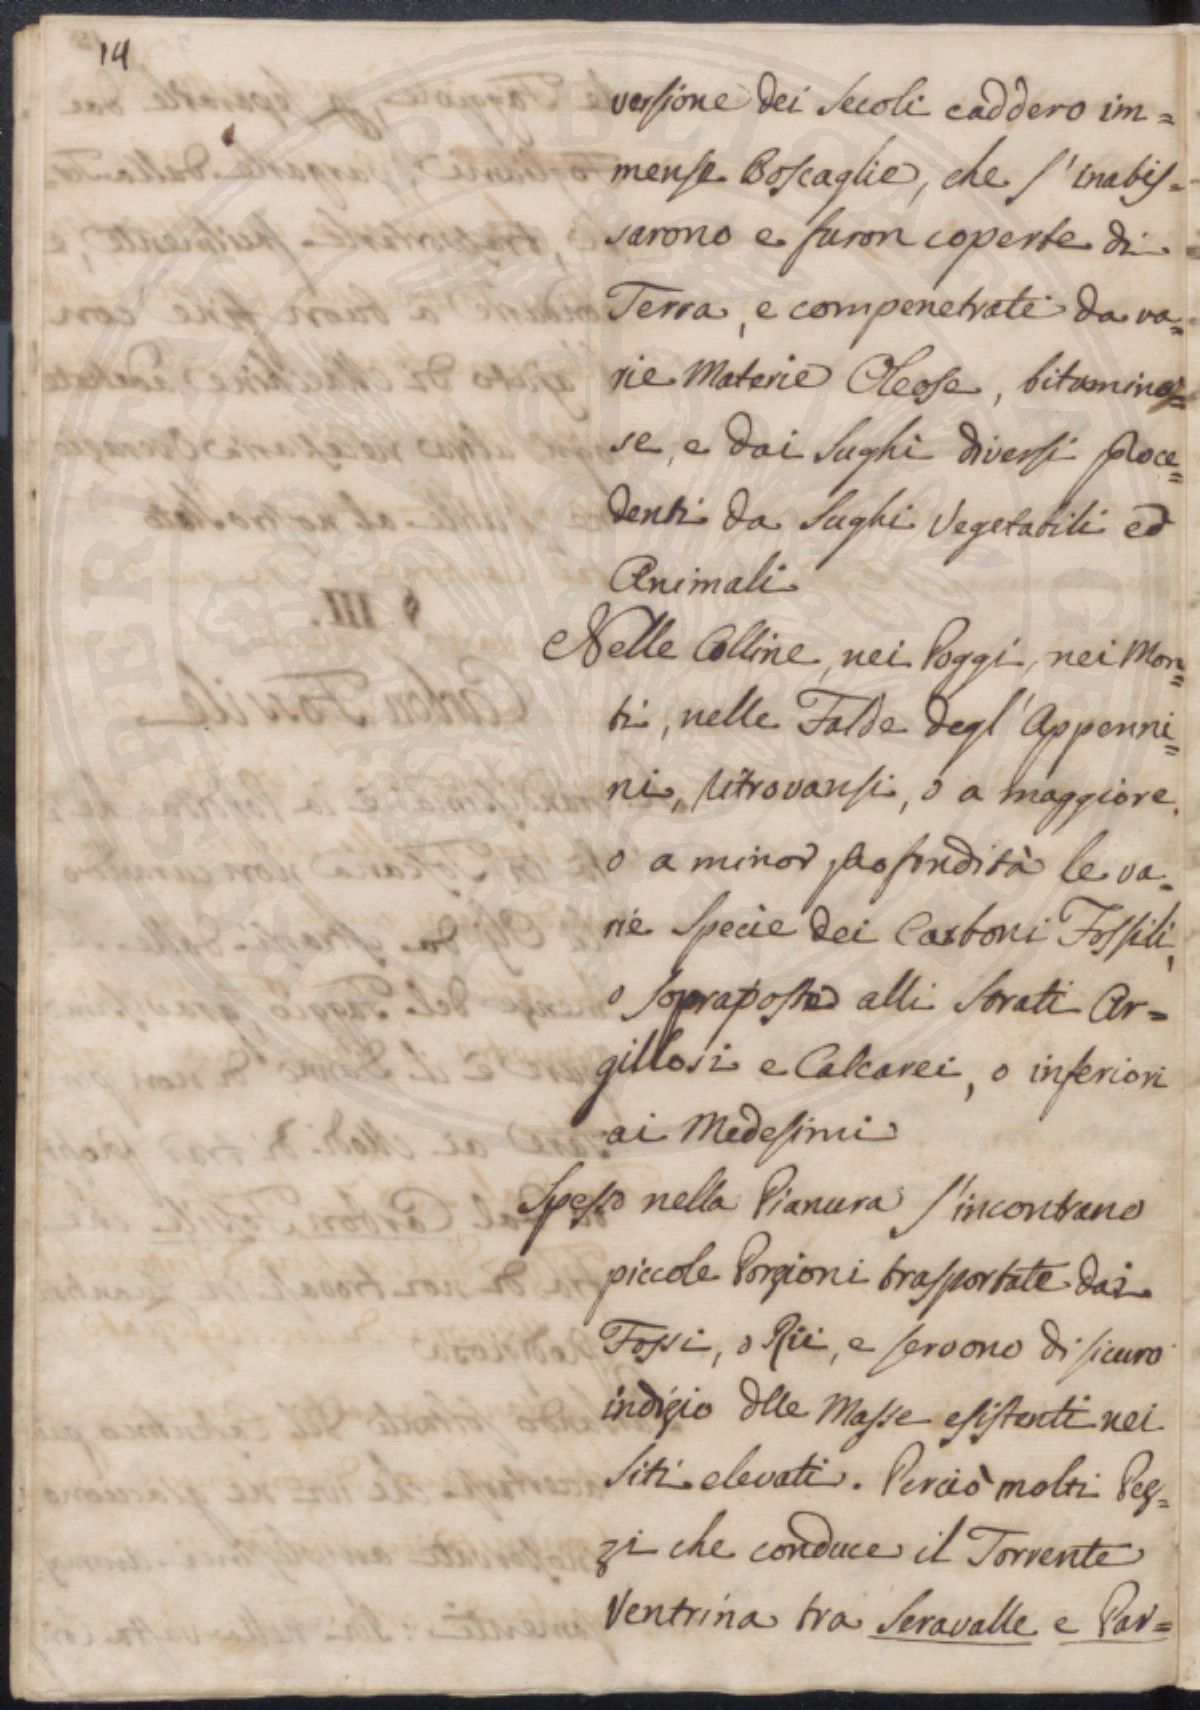 14
versione dei secoli caddero im=
mense Boscaglie, che s'inabis=
sarono e furon coperte di
Terra, e compenetrate da va=
rie Materie Oleose, bitumino=
se, e dai sughi diversi proce=
denti da sughi Vegetabili ed
Animali
Nelle Colline, nei Poggi, nei Mon=
ti, nelle Falde degl'Appenni=
ni, ritrovansi, o a maggiore,
o a minor profondità le va=
rie specie dei Carboni Fossili,
o soprapposte alli strati Ar=
gillosi e Calcarei, o inferiori
ai Medesimi
Spesso nella Pianura s'incontrano
piccole Porzioni trasportate dai
Fossi, o Rii, e servono di sicuro
indizio dlle Masse esistenti nei
siti elevati. Perciò molti Pez=
zi che conduce il Torrente
Ventrina tra Seravalle e Par=